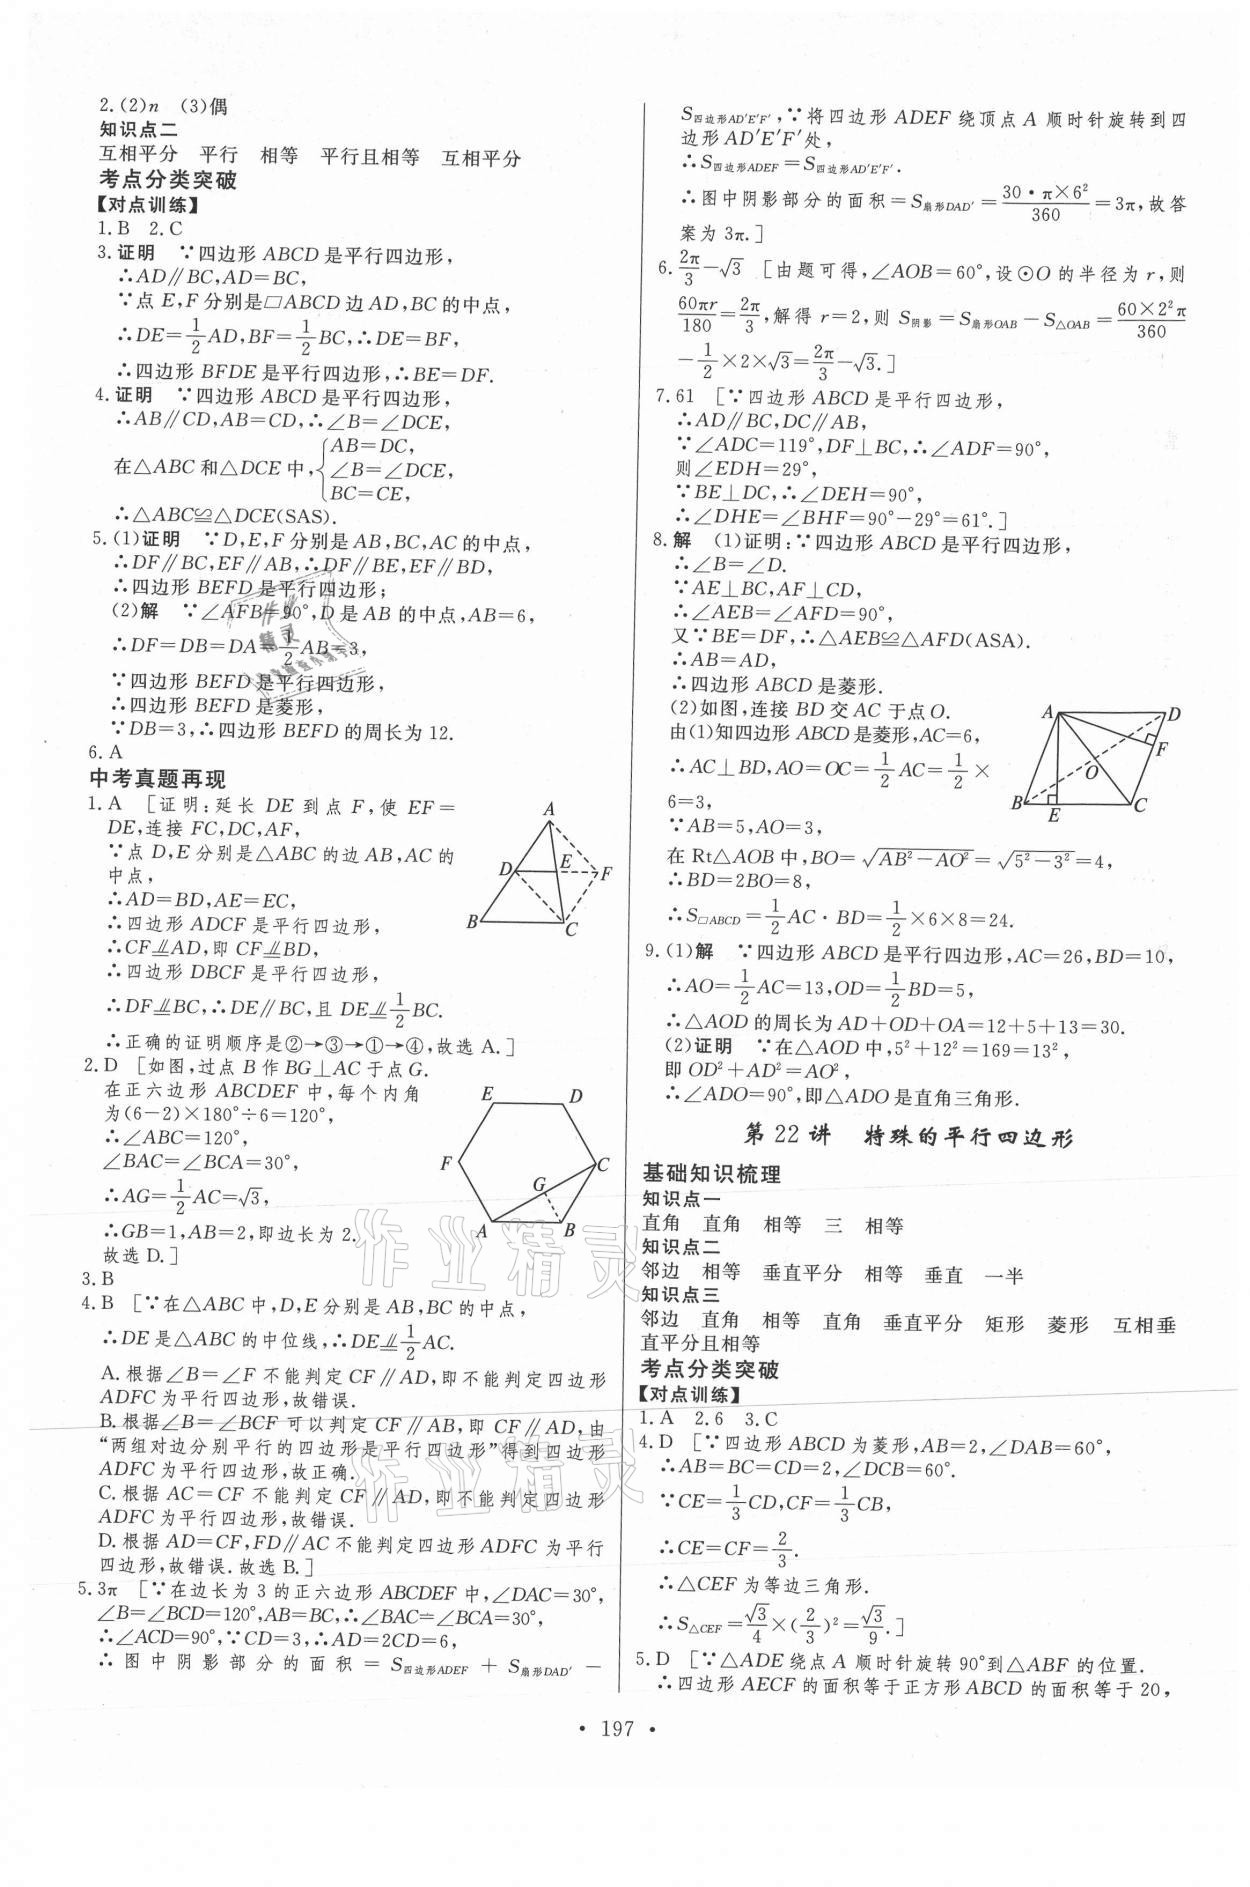 2.(2)n　(3)偶
知识点二
互相平分　平行　相等　平行且相等　互相平分
考点分类突破
【对点训练】
1.B　2.C
3.证明　∵四边形 ABCD 是平行四边形,
∴AD∥BC,AD=BC,
∵点 E,F 分别是□ABCD 边 AD,BC 的中点,
∴DE=1/2AD,BF=1/2BC,∴DE=BF,
∴四边形 BFDE 是平行四边形,∴BE=DF.
4.证明　∵四边形 ABCD 是平行四边形,
∴AB∥CD,AB=CD,∴∠B=∠DCE,
在△ABC 和△DCE 中,{AB=DC,
∠B=∠DCE,
BC=CE,
∴△ABC≌△DCE(SAS).
5.(1)证明　∵D,E,F 分别是 AB,BC,AC 的中点,
∴DF∥BC,EF∥AB,∴DF∥BE,EF∥BD,
∴四边形 BEFD 是平行四边形;
(2)解　∵∠AFB=90°,D 是 AB 的中点,AB=6,
∴DF=DB=DA=1/2AB=3,
∵四边形 BEFD 是平行四边形,
∴四边形 BEFD 是菱形,
∵DB=3,∴四边形 BEFD 的周长为 12.
6.A
中考真题再现
1.A　[证明:延长 DE 到点 F,使 EF=
DE,连接 FC,DC,AF,
∵点 D,E 分别是△ABC 的边 AB,AC 的
中点,
∴AD=BD,AE=EC,
∴四边形 ADCF 是平行四边形,
∴CF⫽AD,即 CF⫽BD,
∴四边形 DBCF 是平行四边形,
∴DF⫽BC,∴DE∥BC,且 DE⫽1/2BC.
∴正确的证明顺序是②→③→①→④,故选 A.]
A
D
E
F
B
C
2.D　[如图,过点 B 作 BG⊥AC 于点 G.
在正六边形 ABCDEF 中,每个内角
为(6-2)×180°÷6=120°,
∴∠ABC=120°,
∠BAC=∠BCA=30°,
∴AG=1/2AC=√3,
∴GB=1,AB=2,即边长为 2.
故选 D.]
E
D
F
C
G
A
B
3.B
4.B　[∵在△ABC 中,D,E 分别是 AB,BC 的中点,
∴DE 是△ABC 的中位线,∴DE⫽1/2AC.
A.根据∠B=∠F 不能判定 CF∥AD,即不能判定四边形
ADFC 为平行四边形,故错误.
B.根据∠B=∠BCF 可以判定 CF∥AB,即 CF∥AD,由
“两组对边分别平行的四边形是平行四边形”得到四边形
ADFC 为平行四边形,故正确.
C.根据 AC=CF 不能判定 CF∥AD,即不能判定四边形
ADFC 为平行四边形,故错误.
D.根据 AD=CF,FD∥AC 不能判定四边形 ADFC 为平行
四边形,故错误.故选 B.]
5.3π　[∵在边长为 3 的正六边形 ABCDEF 中,∠DAC=30°,
∠B=∠BCD=120°,AB=BC,∴∠BAC=∠BCA=30°,
∴∠ACD=90°,∵CD=3,∴AD=2CD=6,
∴图中阴影部分的面积=S四边形ADEF+S扇形DAD′-
S四边形AD′E′F′,∵将四边形 ADEF 绕顶点 A 顺时针旋转到四
边形 AD′E′F′处,
∴S四边形ADEF=S四边形AD′E′F′.
∴图中阴影部分的面积=S扇形DAD′=30·π×6²/360=3π,故答
案为 3π.]
6.2π/3-√3　[由题可得,∠AOB=60°,设⊙O 的半径为 r,则
60πr/180=2π/3,解得 r=2,则 S阴影=S扇形OAB-S△OAB=60×2²π/360
-1/2×2×√3=2π/3-√3.]
7.61　[∵四边形 ABCD 是平行四边形,
∴AD∥BC,DC∥AB,
∵∠ADC=119°,DF⊥BC,∴∠ADF=90°,
则∠EDH=29°,
∵BE⊥DC,∴∠DEH=90°,
∴∠DHE=∠BHF=90°-29°=61°.]
8.解　(1)证明:∵四边形 ABCD 是平行四边形,
∴∠B=∠D.
∵AE⊥BC,AF⊥CD,
∴∠AEB=∠AFD=90°,
又∵BE=DF,∴△AEB≌△AFD(ASA).
∴AB=AD,
∴四边形 ABCD 是菱形.
(2)如图,连接 BD 交 AC 于点 O.
由(1)知四边形 ABCD 是菱形,AC=6,
∴AC⊥BD,AO=OC=1/2AC=1/2×
6=3,
∵AB=5,AO=3,
在 Rt△AOB 中,BO=√(AB²-AO²)=√(5²-3²)=4,
∴BD=2BO=8,
∴S□ABCD=1/2AC·BD=1/2×6×8=24.
A
D
F
O
B
E
C
9.(1)解　∵四边形 ABCD 是平行四边形,AC=26,BD=10,
∴AO=1/2AC=13,OD=1/2BD=5,
∴△AOD 的周长为 AD+OD+OA=12+5+13=30.
(2)证明　∵在△AOD 中,5²+12²=169=13²,
即 OD²+AD²=AO²,
∴∠ADO=90°,即△ADO 是直角三角形.
第 22 讲　特殊的平行四边形
基础知识梳理
知识点一
直角　直角　相等　三　相等
知识点二
邻边　相等　垂直平分　相等　垂直　一半
知识点三
邻边　直角　相等　直角　垂直平分　矩形　菱形　互相垂
直平分且相等
考点分类突破
【对点训练】
1.A　2.6　3.C
4.D　[∵四边形 ABCD 为菱形,AB=2,∠DAB=60°,
∴AB=BC=CD=2,∠DCB=60°.
∵CE=1/3CD,CF=1/3CB,
∴CE=CF=2/3.
∴△CEF 为等边三角形.
∴S△CEF=√3/4×(2/3)²=√3/9.]
5.D　[∵△ADE 绕点 A 顺时针旋转 90°到△ABF 的位置.
∴四边形 AECF 的面积等于正方形 ABCD 的面积等于 20,
• 197 •
作业精灵
作业精灵
作业
精灵